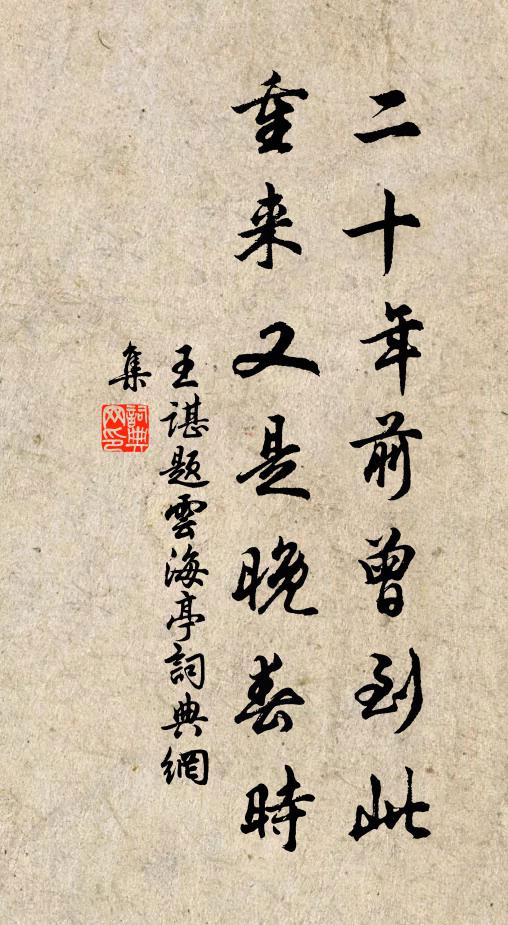 二十年前曾到此
重来又是晚春時
王諶題雲海亭詞典網
集
詞典
网印